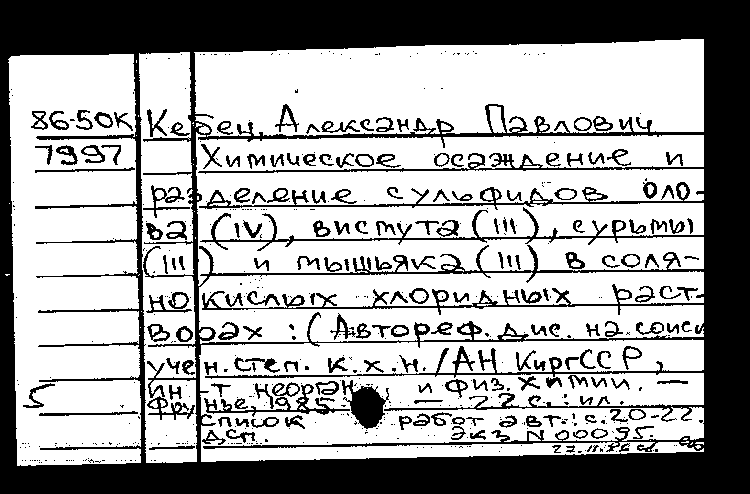 86-50К Кебец, Александр Павлович
7997 Химическое осаждение и
разделение сульфидов оло-
ва (IV), висмута (III), сурьмы
(III) и мышьяка (III) в соля-
нокислых хлоридных раст-
ворах : (Автореф. дис. на соиск
учен. степ. к.х.н. / АН КиргССР,
ин-т неорган. и физ. химии. —
Фрунзе, 1985. — 22 с. : ил.
5
Список работ авт.: с. 20-22.
Дсп. Экз. N 00095.